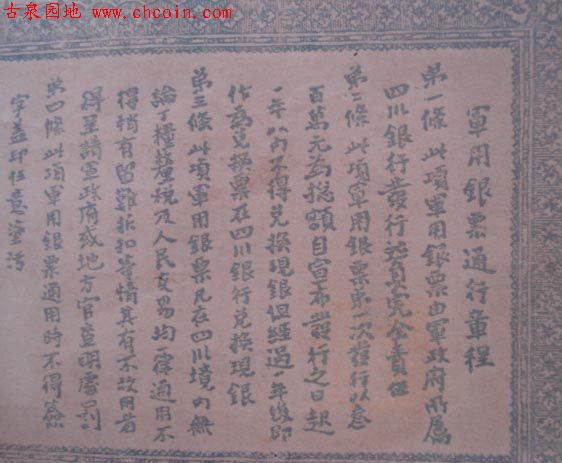 古泉园地 www.chcoin.com
軍用銀票通行章程
第一條此項軍用銀票由軍政府所屬
四川銀行發行並負完全責任
第二條此項軍用銀票第一次發行以叁
百萬元為總額自宣布發行之日起
一年以內不得兌換現銀但經過一年後即
作為兌換票在四川銀行兌換現銀
第三條此項軍用銀票凡在四川境內無
論丁糧釐稅及人民交易均一律通用不
得稍有留難折扣等情其有不收用者
得呈請軍政府或地方官查明處罰
第四條此項軍用銀票通用時不得簽
字蓋印任意塗污